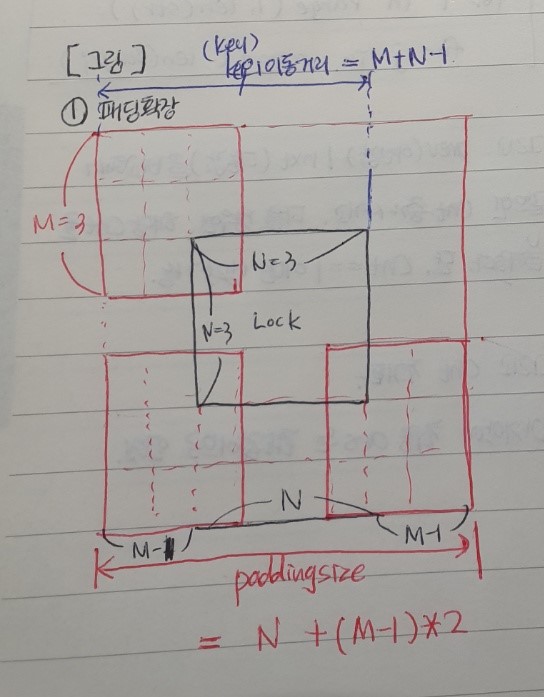 [그림]
(key)
key이동거리 = M+N-1
① 패딩확장
M=3
N=3
N=3 Lock
N
M-1
M-1
paddingsize
= N +(M-1)*2